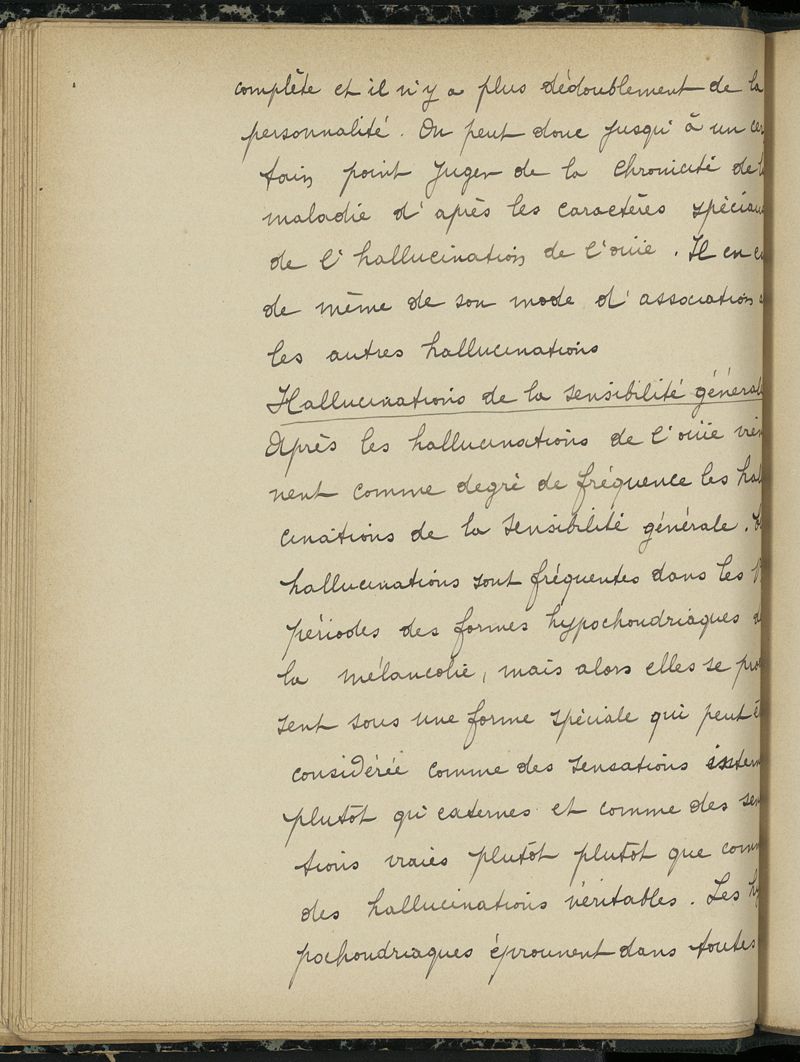 complète et il n'y a plus dédoublement de la
personnalité. On peut donc jusqu'à un cer
tain point juger de la chronicité de l
maladie d'après les caractères spéciau
de l'hallucination de l'ouïe. Il en e
de même de son mode d'association
les autres hallucinations
Hallucinations de la sensibilité générale
Après les hallucinations de l'ouïe vien
nent comme degré de fréquence les hal
cinations de la sensibilité générale.
hallucinations sont fréquentes dans les
périodes des formes hypochondriaques d
la mélancolie, mais alors elles se pro
sent sous une forme spéciale qui peut ê
considérée comme des sensations intern
plutôt qu'externes et comme des sen
tions vraies plutôt plutôt que comm
des hallucinations véritables. Les hy
pochondriaques éprouvent dans toutes